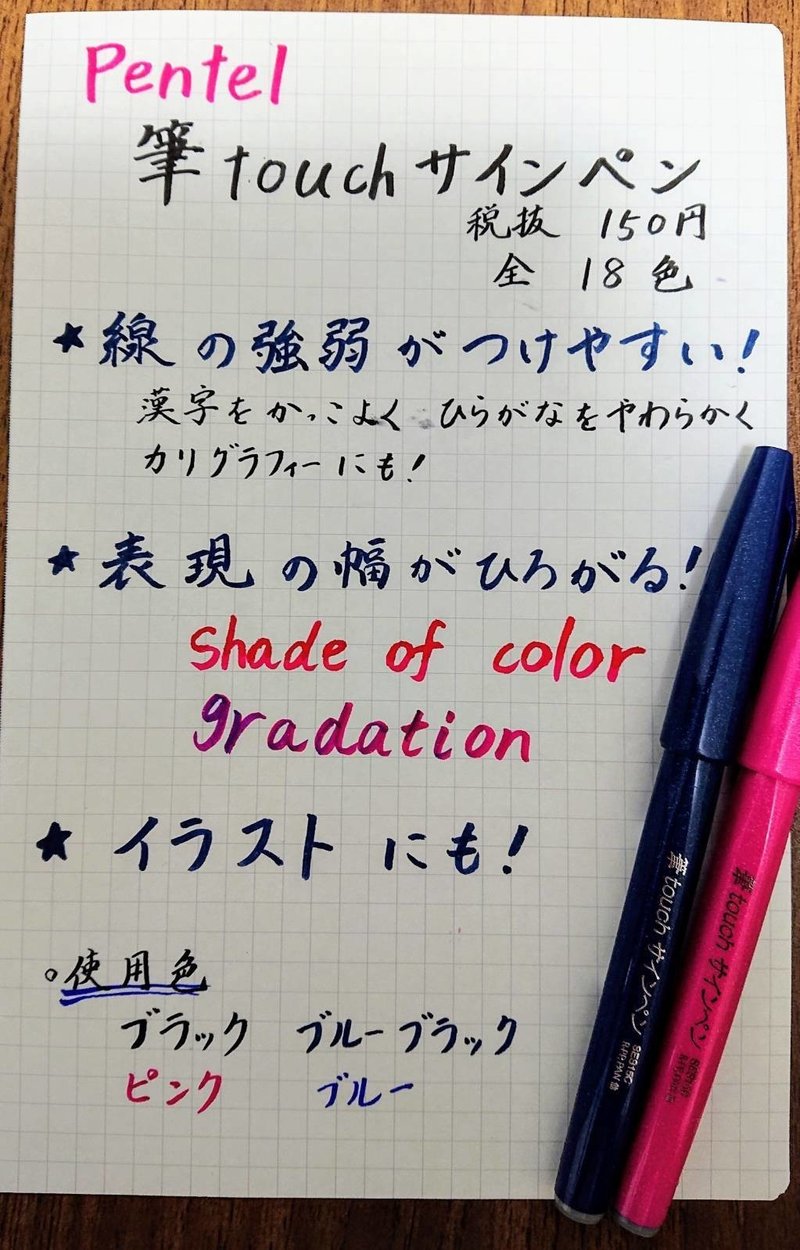 Pentel
筆touchサインペン
税抜 150円
全 18色
★線の強弱がつけやすい!
漢字をかっこよく ひらがなをやわらかく
カリグラフィーにも!
★表現の幅がひろがる!
shade of color
gradation
★イラストにも!
○使用色
ブラック ブルーブラック
ピンク ブルー
筆touchサインペン
筆touchサインペン